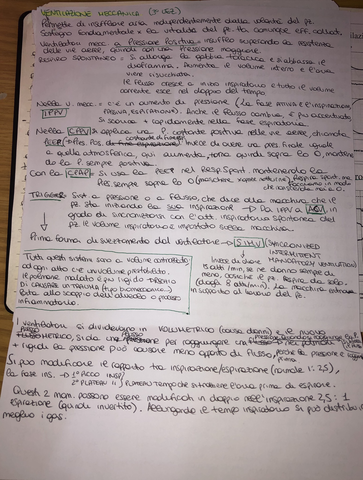 VENTILAZIONE MECCANICA (3ª LEZ)
Permette di insufflare aria indipendentemente dalla volontà del pz.
Sostegno fondamentale x la vita del pz. Ha comunque eff. collat.
Ventilatori mecc. a Pressione Positiva: insufflo superando la resistenza
delle vie aeree, quindi con una pressione maggiore.
RESPIRO SPONTANEO: si allarga la gabbia toracica e si abbassa il
diaframma. Aumenta il volume interno e l'aria
viene risucchiata.
Il flusso cresce a inizio inspirazione e tutto il volume
corrente esce nel doppio del tempo.
Nella v. mecc. c'è un aumento di pressione (la fase attiva è l'inspirazione,
passiva, espirazione). Anche il flusso cambia, è più accentuato
IPPV si scarica + rapidamente nella fase espiratoria.
Nella CPPV si applica una P. costante positiva nelle vie aeree, chiamata
PEEP → Pres. Pos. costante di fine esp. invece di avere una pres. finale uguale
a quella atmosferica, qui aumenta, torna quindi sopra lo 0, mantenendo
la P. sempre positiva.
Con la CPAP si usa la PEEP nel resp. spont. mantenendo la
Pres. sempre sopra lo 0
TRIGGER: Sist. a pressione o a flusso, che dice alla macchina che il
pz sta iniziando la sua inspirazione → Da IPPV a ACV, in
grado di sincronizzarsi con l'att. inspiratoria spontanea del
pz. Il volume inspiratorio è impostato sulla macchina.
Prima forma di svezzamento dal ventilatore → SIMV (SYNCRONIZED
INTERMITTENT
MANDATORY VENTILATION)
Tutti questi sistemi sono a volume controllato
ad ogni atto c'è un volume prestabilito.
Il polmone malato è più rigido → rischio
di creare un trauma (tipo barotrauma)
data allo scoppio dell'alveolo o processo
infiammatorio.
Invece di dare
15 atti/min, se ne danno sempre di
meno, cosicché il pz respira da solo.
(dagli 8 atti/min). La macchina entra
in supporto al lavoro del pz.
I ventilatori si dividevano in VOLUMETRICO (causa danni) e il nuovo
PRESSOMETRICO, si dà una pressione per raggiungere
+ rigida la pressione può causare meno apporto di flusso, perché la pressione è
Si può modificare il rapporto tra inspirazione/espirazione (normale 1:2,5),
la fase ins. → 1° PICCO INSP/
2° PLATEAU
Questi 2 mom. possono essere modificati in doppio nell'inspirazione 2,5:1
espirazione (quindi invertito). Allungando il tempo inspiratorio si può distribuire
meglio i gas.